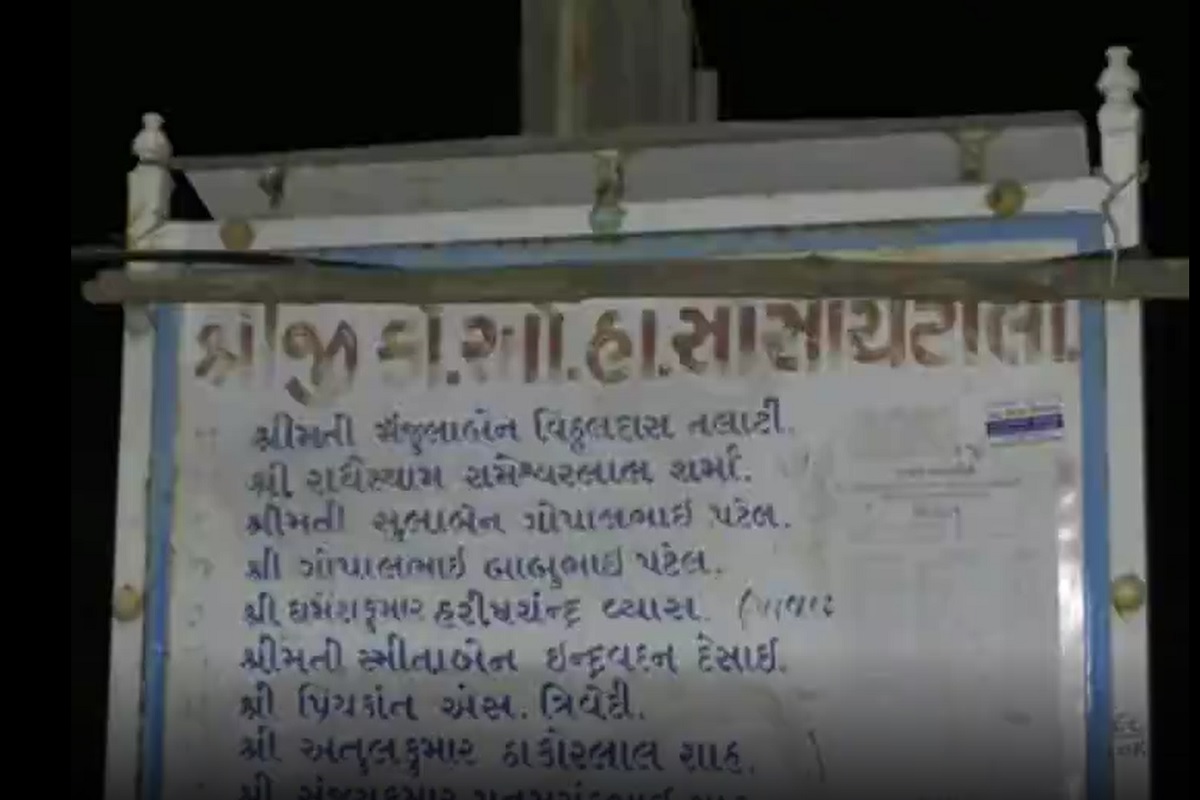 શ્રીજી કો.ઓ.હા.સોસાયટીલી.
શ્રીમતી મંજુલાબેન વિઠ્ઠલદાસ તલાટી.
શ્રી રાધેસ્યામ રામેશ્વરલાલ શર્મા.
શ્રીમતી સુલાબેન ગોપાલભાઇ પટેલ.
શ્રી ગોપાલભાઇ બાબુભાઇ પટેલ.
શ્રી ધર્મેશકુમાર હરીશચંન્દ્ર વ્યાસ.
શ્રીમતી સ્મીતાબેન ઇન્દ્રવદન દેસાઇ.
શ્રી પ્રિયકાંત એસ. ત્રિવેદી.
શ્રી અતુલકુમાર ઠાકોરલાલ શાહ.
શ્રી